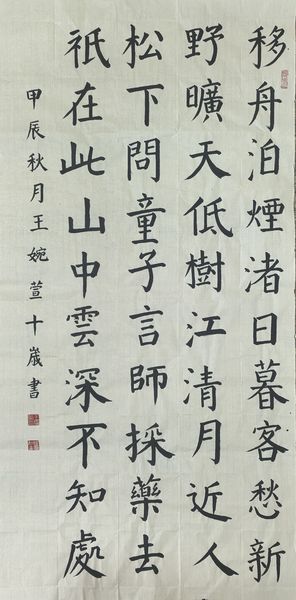 移舟泊煙渚日暮客愁新
野曠天低樹江清月近人
松下問童子言師採藥去
祇在此山中雲深不知處
甲辰秋月王婉萱十歲書